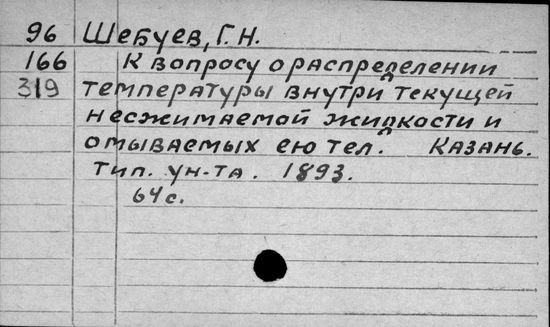 96 Шебуев, Г. Н.
166 К вопросу о распределении
319 температуры внутри текущей
несжимаемой жидкости и
омываемых ею тел. Казань.
Тип. ун-та. 1893.
64 с.